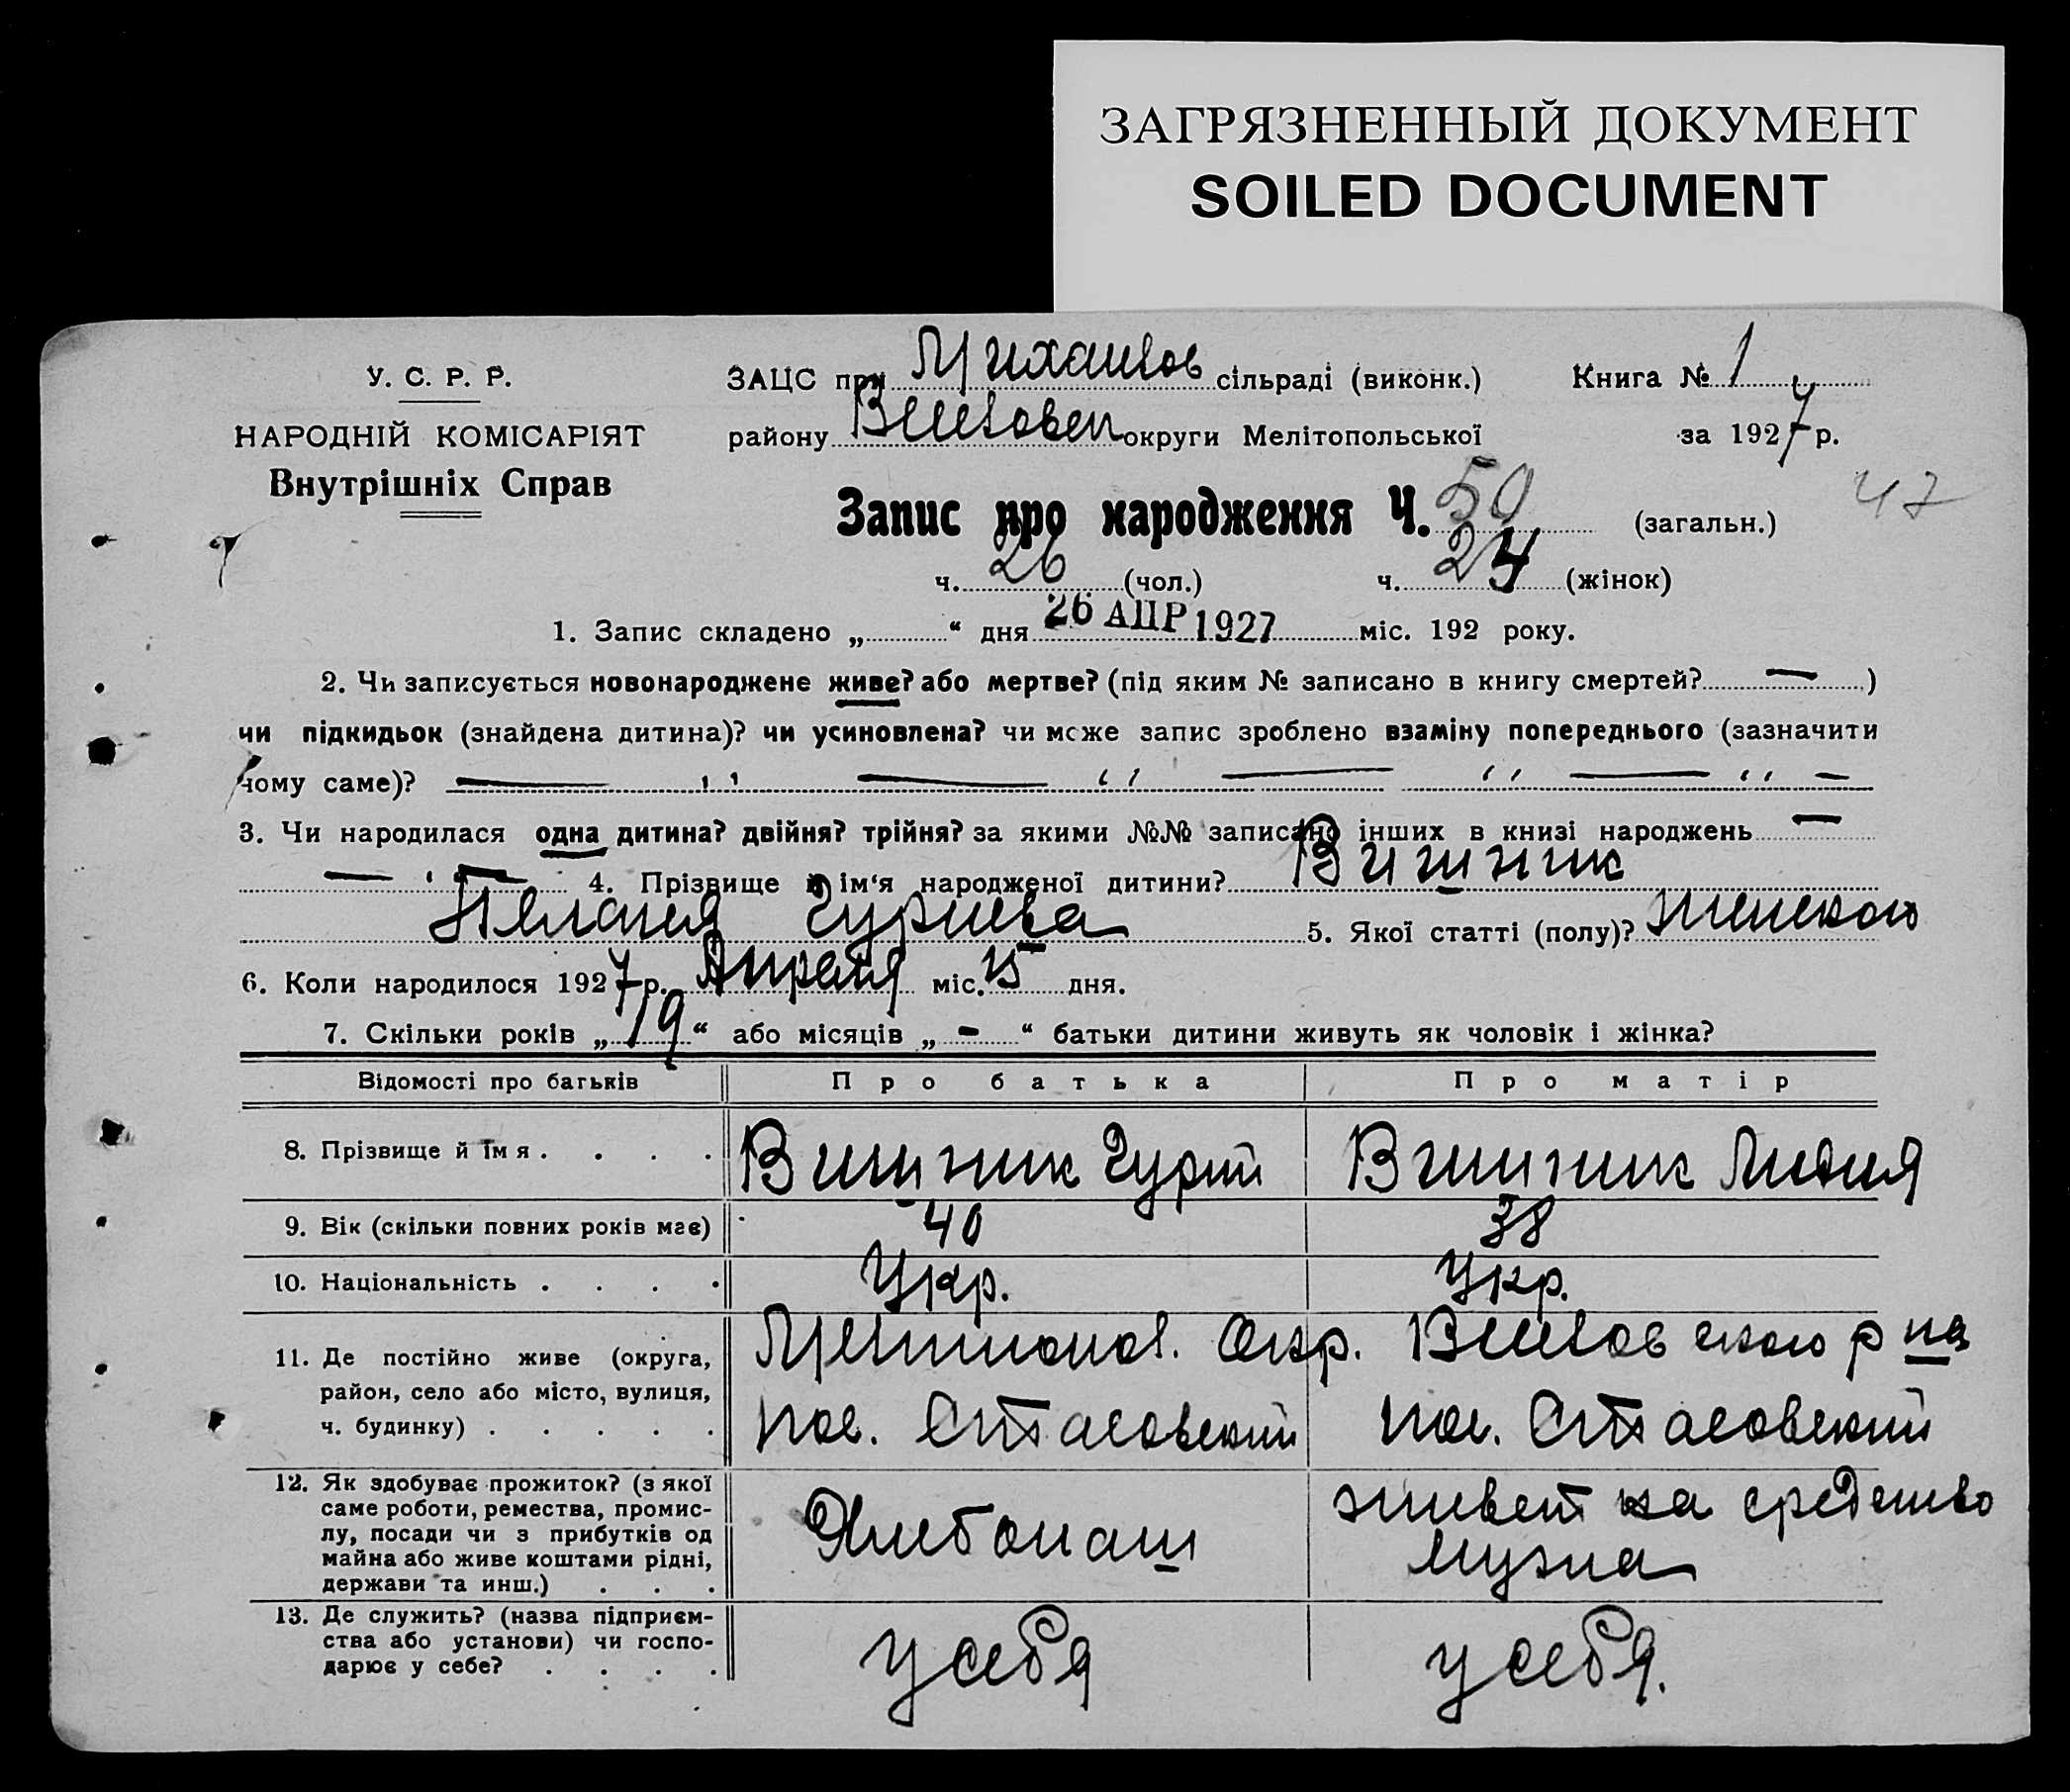 ЗАГРЯЗНЕННЫЙ ДОКУМЕНТ
SOILED DOCUMENT
У. С. Р. Р.
НАРОДНІЙ КОМІСАРІЯТ
Внутрішніх Справ
ЗАЦС при Михайлов сільраді (виконк.)
району округи Мелітопольської
Книга № 1
за 1927 р.
47
Запис про народження Ч. 50 (загальн.)
ч. 26 (чол.) ч. 24 (жінок)
1. Запис складено „ “ дня 26 АПР 1927 міс. 192 року.
2. Чи записується новонароджене живе? або мертве? (під яким № записано в книгу смертей? — )
чи підкидьок (знайдена дитина)? чи усиновлена? чи може запис зроблено взаміну попереднього (зазначити
чому саме)? — " — " — " — " —
3. Чи народилася одна дитина? двійня? трійня? за якими №№ записано інших в книзі народжень —
— " — 4. Прізвище й ім‘я народженої дитини? Вишник
Пелагия Гуриева 5. Якої статті (полу)? женского
6. Коли народилося 1927 р. Апреля міс. 15 дня.
7. Скільки років „ 19 “ або місяців „ - “ батьки дитини живуть як чоловік і жінка?
Відомості про батьків Про батька Про матір
8. Прізвище й імя . . . . Вишник Гурий Вишник Лидия
9. Вік (скільки повних років має) 40 38
10. Національність . . . . Укр. Укр.
11. Де постійно живе (округа,
район, село або місто, вулиця,
ч. будинку) . . . . .
Мелитопол. Окр. ского р на
пос. Стасовский пос. Стасовский
12. Як здобуває прожиток? (з якої
саме роботи, ремества, промис-
лу, посади чи з прибутків од
майна або живе коштами рідні,
держави та инш.) . . .
Хлебопаш живет на средство
мужа
13. Де служить? (назва підприєм-
ства або установи) чи госпо-
дарює у себе? . . . .
у себя у себя.